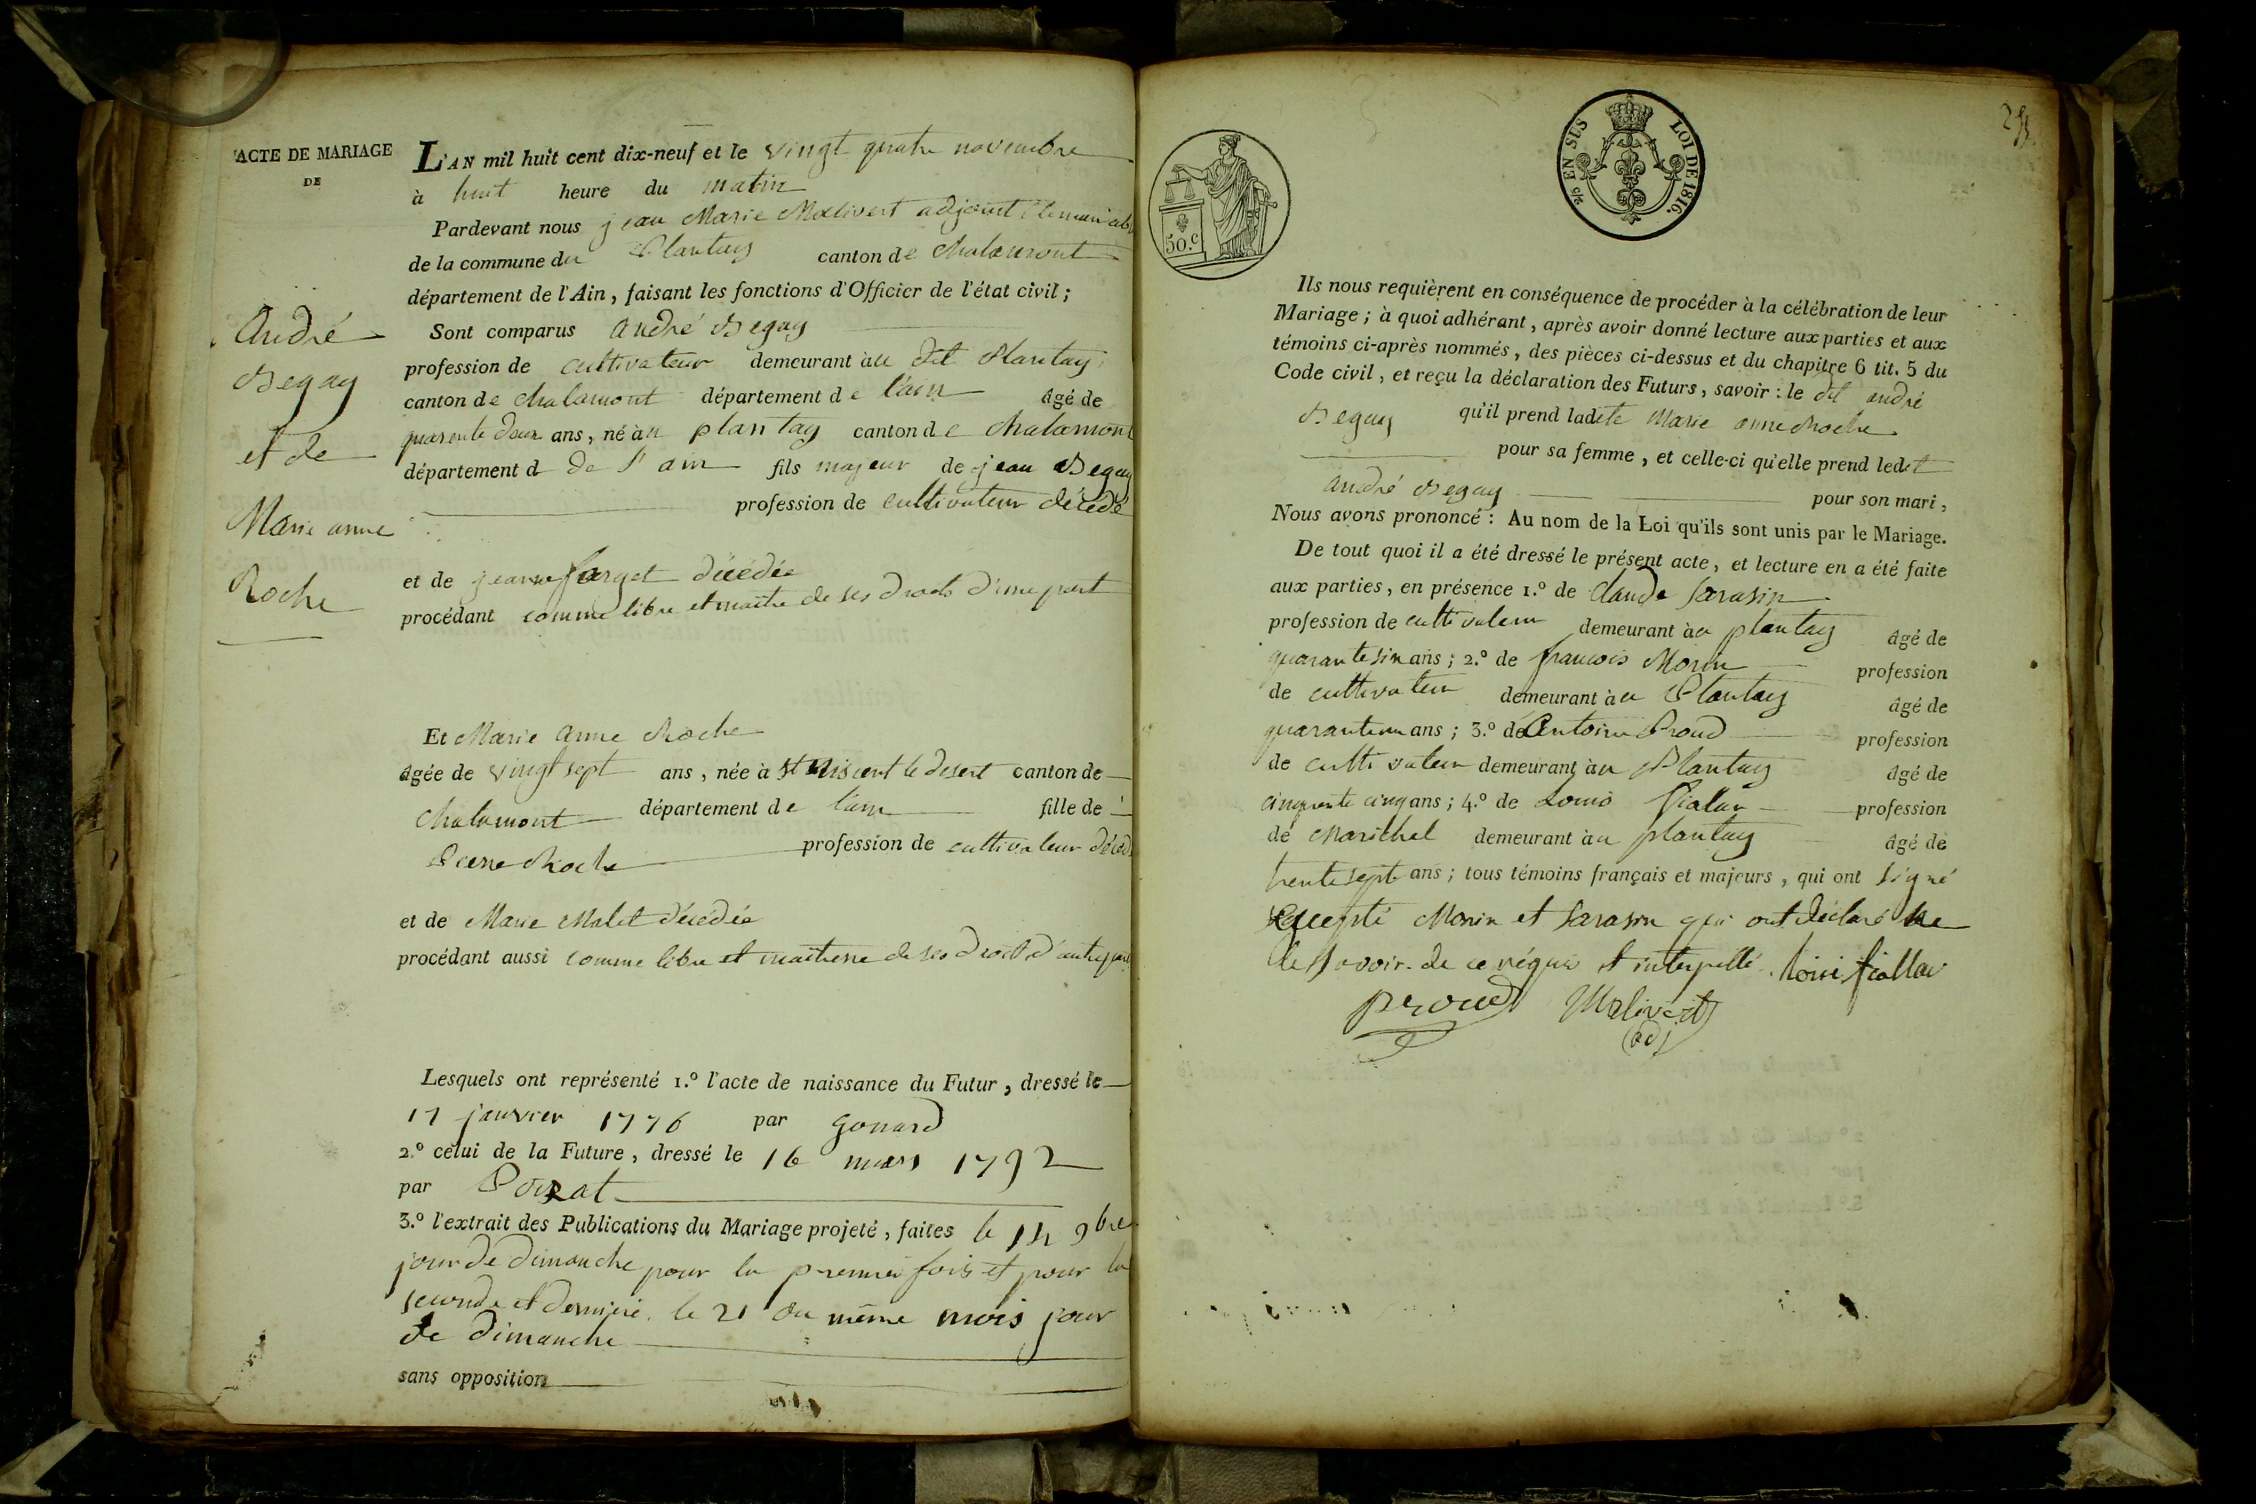 ACTE DE MARIAGE
DE
André
Begay
et de
Marie anne
Roche
L'AN mil huit cent dix-neuf et le vingt quatre novembre
à huit heure du matin
Pardevant nous jean Marie Malivert adjoint
de la commune du Plantay canton de Chalamont
département de l'Ain, faisant les fonctions d'Officier de l'état civil;
Sont comparus André Begay
profession de cultivateur demeurant àu dit Plantay
canton de Chalamont département de l'ain âgé de
quarente deux ans, né àu plantay canton de Chalamont
département d de l'ain fils majeur de jean Begay
profession de cultivateur décédé
et de jeanne décédée
procédant comme libre et maître de ses droits d'une part
Et Marie Anne Roche
âgée de vingt sept ans, née à St le desert canton de
Chalamont département de l'ain fille de
Pierre Roche profession de cultivateur décéd
et de Marie Malet décédée
procédant aussi comme libre et maitresse de ses droits d'autre part
Lesquels ont représenté 1.º l'acte de naissance du Futur, dressé le
17 janvier 1776 par gonard
2.º celui de la Future, dressé le 16 mars 1792
par
3.º l'extrait des Publications du Mariage projeté, faites le 14 9bre
jour de dimanche pour la premier fois et pour la
seconde et dernière le 21 du même mois jour
de dimanche
sans opposition
50.c
EN SUS LOI DE 1816.
Ils nous requièrent en conséquence de procéder à la célébration de leur
Mariage; à quoi adhérant, après avoir donné lecture aux parties et aux
témoins ci-après nommés, des pièces ci-dessus et du chapitre 6 tit. 5 du
Code civil, et reçu la déclaration des Futurs, savoir: le dit andré
Begay qu'il prend ladete Marie anne Roche
pour sa femme, et celle-ci qu'elle prend ledit
André Begay pour son mari,
Nous avons prononcé: Au nom de la Loi qu'ils sont unis par le Mariage.
De tout quoi il a été dressé le présent acte, et lecture en a été faite
aux parties, en présence 1.º de Claude Sarasin
profession de cultivateur demeurant àu plantay âgé de
quarante six ans; 2.º de francois Morin profession
de cultivateur demeurant àu Plantay âgé de
ans; 3.º de Antoine Proud profession
de cultivateur demeurant àu Plantay âgé de
cinquente cinq ans; 4.º de Louis profession
de Marichal demeurant àu plantay âgé de
trente sept ans; tous témoins français et majeurs, qui ont signé
Excepté Morin et Sarasin qui ont déclaré ne
le savoir de ce réquis et interpellé.
proud Malivert
adj